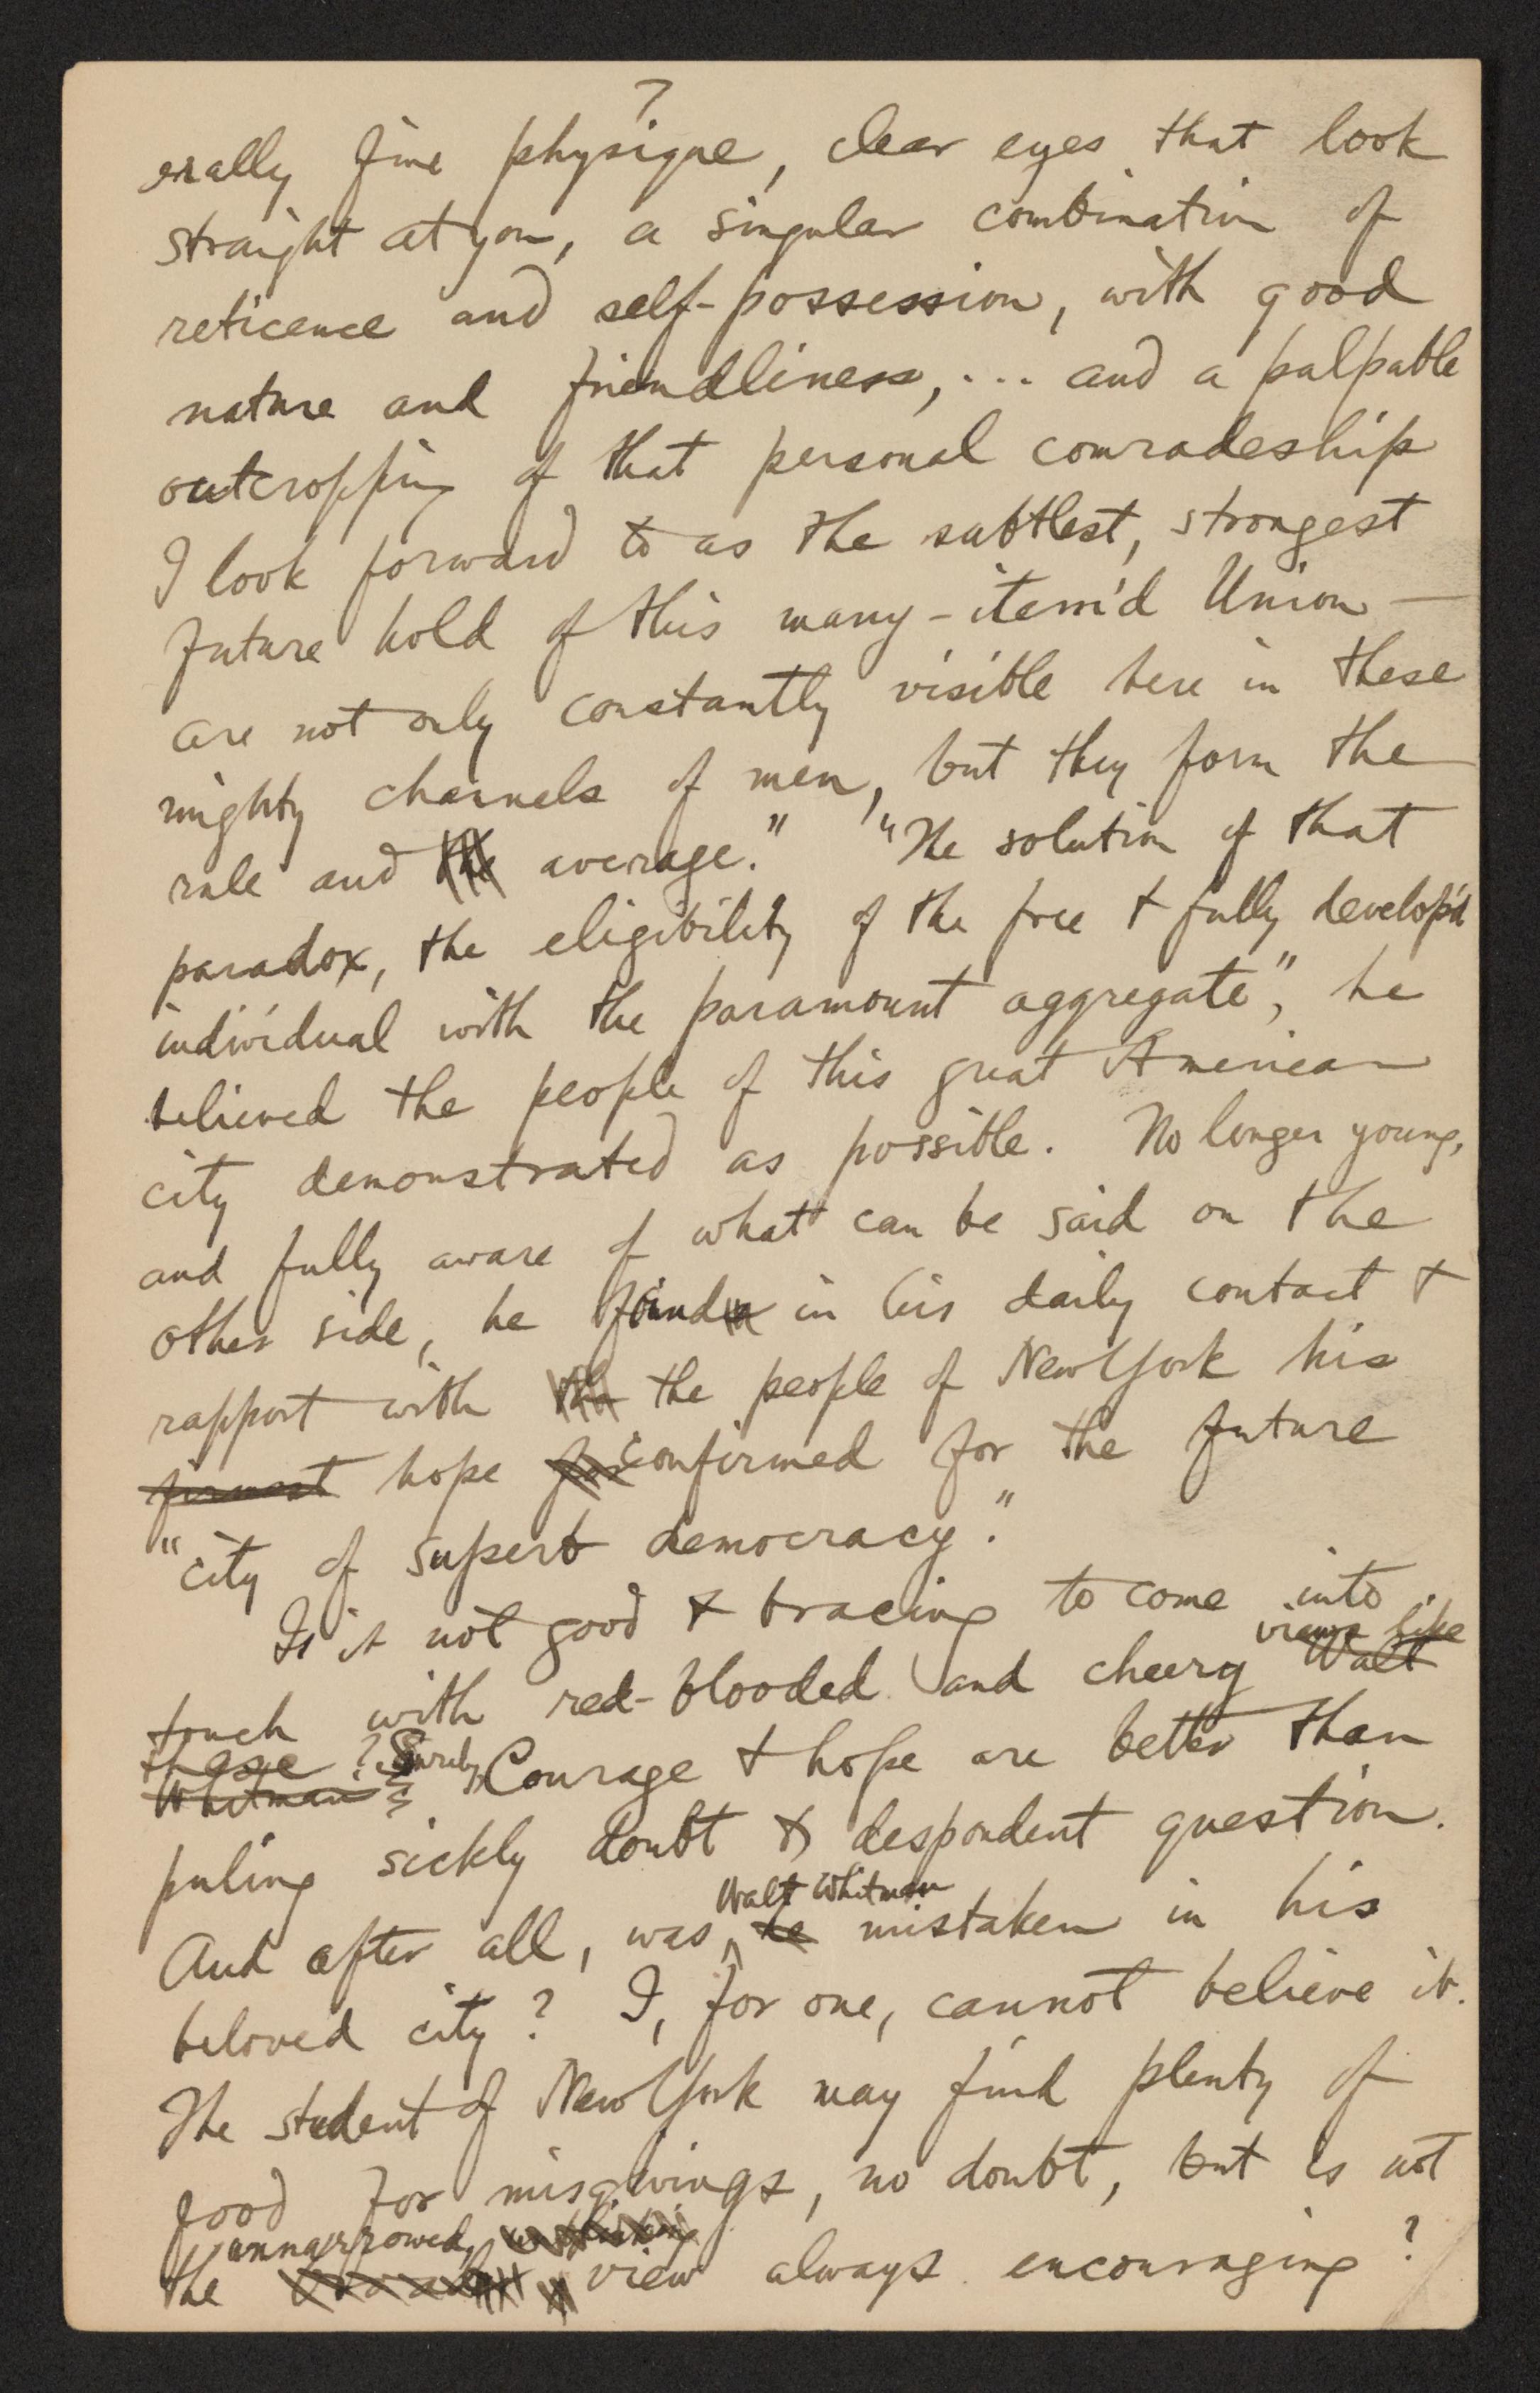 7
erally fine physique, clear eyes that look
straight at you, a singular combination of
reticence and self-possession, with good
nature and friendliness, ... and a palpable
outcropping of that personal comradeship
I look forward to as the subtlest, strongest
future hold of this many-item'd Union —
are not only constantly visible here in these
mighty channels of men, but they form the
rule and the average." "The solution of that
paradox, the eligibility of the free + fully develop'd
individual with the paramount aggregate", he
believed the people of this great American
city demonstrated as possible. No longer young,
and fully aware of what can be said on the
other side, he found in his daily contact +
rapport with the the people of New York his
firmest hope for confirmed for the future
"city of superb democracy."
Is it not good & bracing to come into
views like
touch with red-blooded and cheery Walt
these? Surely
Whitman? Courage + hope are better than
puling sickly doubt & despondent question.
Walt Whitman
And after all, was he mistaken in his
beloved city? I, for one, cannot believe it.
The student of New York may find plenty of
food for misgivings, no doubt, but is not
unnarrowed,
the view always encouraging?